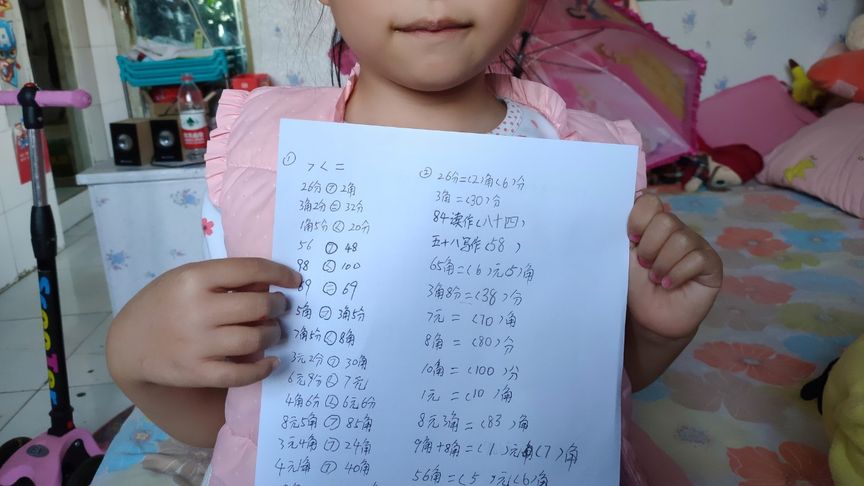 ① > < =
26分 > 2角
3角2分 = 32分
1角5分 < 20分
56 > 48
98 < 100
69 = 69
5角 > 3角5分
7角5分 < 8角
3元2分 > 30角
6元9分 < 7元
4角6分 < 6元6分
8元5角 > 85角
3元4角 > 24角
4元1角 > 40角
② 26分=(2)角(6)分
3角=(30)分
84读作(八十四)
五十八写作(58)
65角=(6)元(5)角
3角8分=(38)分
7元=(70)角
8角=(80)分
10角=(100)分
1元=(10)角
8元3角=(83)角
9角+8角=(1)元(7)角
56角=(5)元(6)角